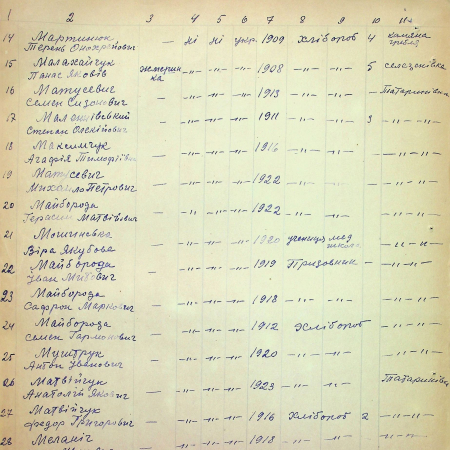 1 2 3 4 5 6 7 8 9 10 11
14 Мартинюк — ні ні укр. 1909 Хлібороб 4
Терень Онохрійович
15 Малахайчук — " — — " — — " — 1908 — " — — " — 5 селезнівка
Панас Яковів
16 Матусевич — — " — — " — — " — 1913 — " — — " — Татаринівка
Семен Сизонович
17 — — " — — " — — " — 1911 — " — — " — 3 — " — " —
Степан Олексійович
18 Максимчук — — " — — " — — " — 1916 — " — — " — — " — " —
Агафія Тимофіївна
19 Матусевич — — " — — " — — " — 1922 — " — — " — — " — " —
Михайло Петрович
20 Майборода — — " — — " — — " — 1922 — " — — " — — " — " —
Герасим Матвійович
21 — — " — — " — — " — 1920 учениця мед — " — " —
Віра Якубова школи
22 Майборода — — " — — " — — " — 1919 Призовник — — " — " —
Іван Митович
23 Майборода — — " — — " — — " — 1918 — " — — " — — " — " —
Сафрон Маркович
24 Майборода — — " — — " — — " — 1912 Хлібороб — " — " —
Семен
25 Мушtrук — — " — — " — — " — 1920 — " — — " — — " — " —
Антон Іванович
26 Матвійчук — — " — — " — — " — 1923 — " — — " — Татаринівка
Анатолій Якович
27 Матвійчук — — " — — " — — " — 1916 Хлібороб 2 — " — " —
Федор Григорович
28 Меланіч — — " — — " — — " — 1918 — " — — " — — " — " —